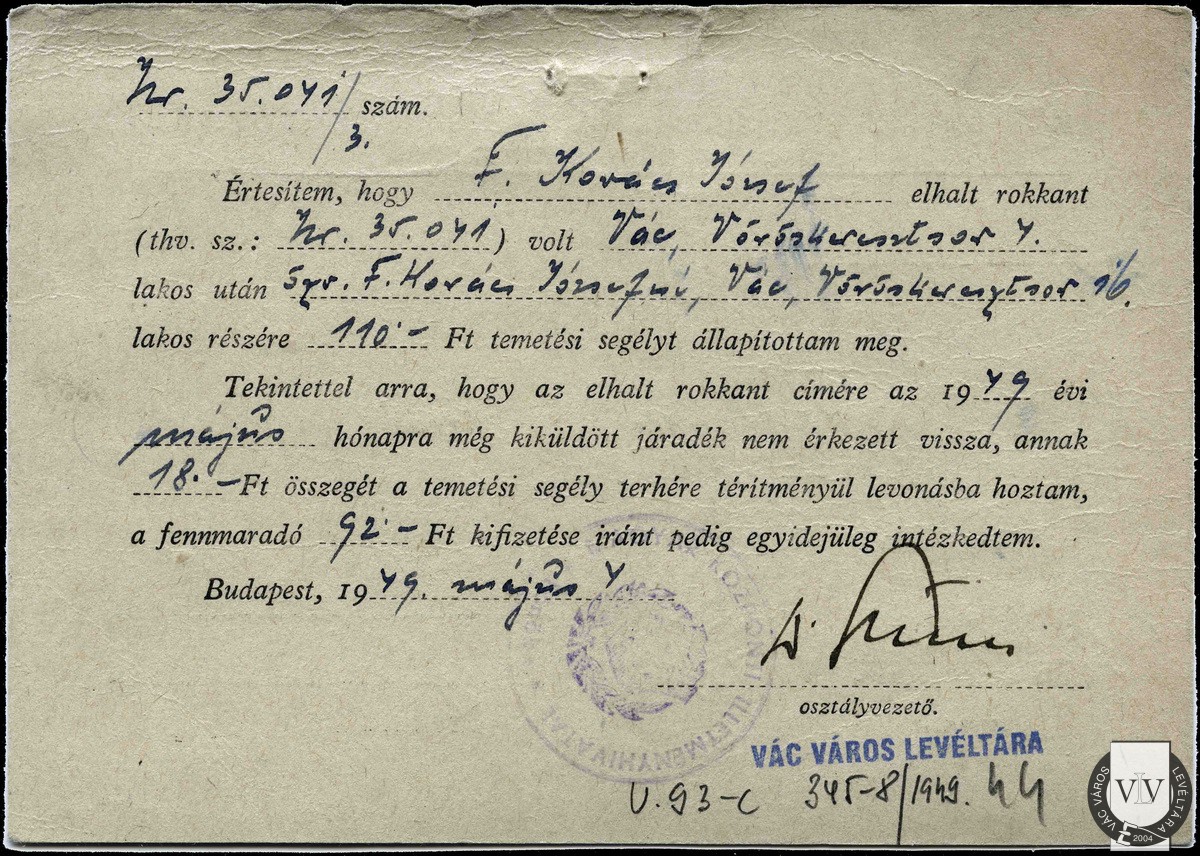 Hr. 35.041/3. szám.
Értesítem, hogy F. Kovács József elhalt rokkant
(thv. sz.: Hr. 35.041) volt Vác, Vöröskeresztsor 4.
lakos után özv. F. Kovács Józsefné, Vác, Vöröskeresztsor
lakos részére 110.- Ft temetési segélyt állapítottam meg.
Tekintettel arra, hogy az elhalt rokkant címére az 1949 évi
május hónapra még kiküldött járadék nem érkezett vissza, annak
18.-Ft összegét a temetési segély terhére térítményül levonásba hoztam,
a fennmaradó 92.- Ft kifizetése iránt pedig egyidejüleg intézkedtem.
Budapest, 1949. május 4.
KÖZPONTI ILLETMÉNYHIVATAL
osztályvezető.
VÁC VÁROS LEVÉLTÁRA
V. 93-c 345-8/1949. 44
VÁC VÁROS LEVÉLTÁRA
VLV
2004